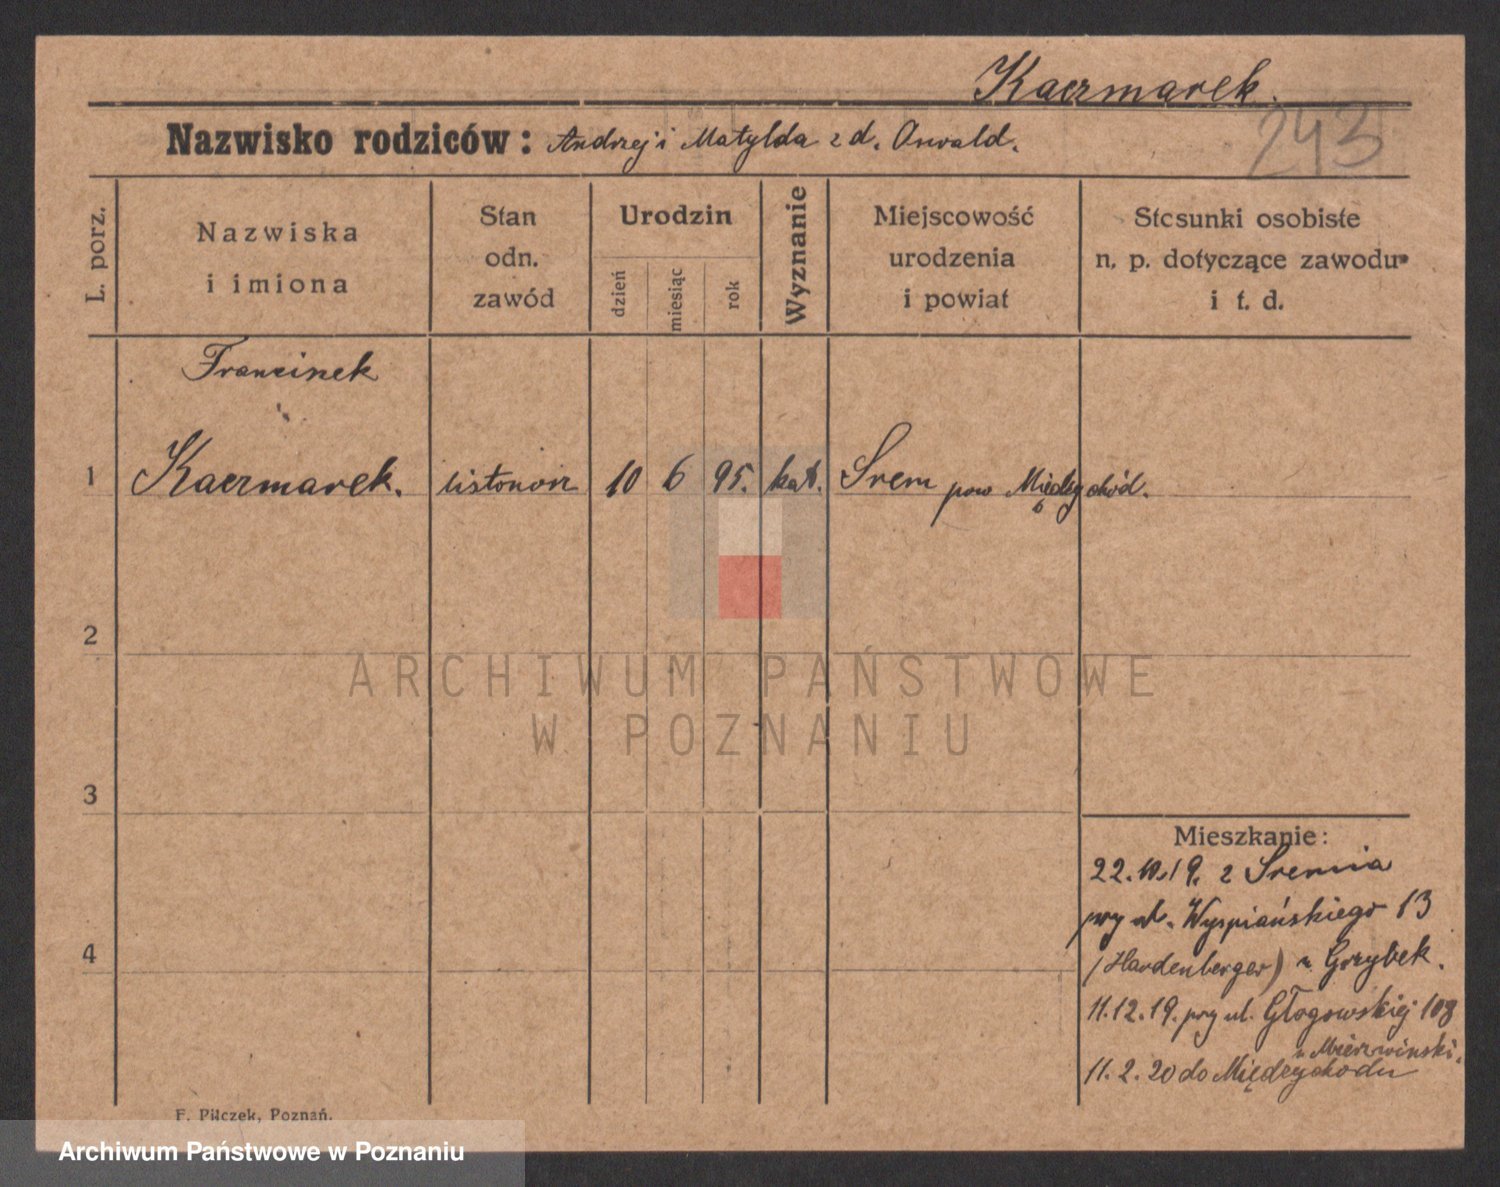 Kaczmarek.
243
Nazwisko rodziców: Andrzej i Matylda z d. Oswald.
L. porz.
Nazwiska
i imiona
Stan
odn.
zawód
Urodzin
dzień
miesiąc
rok
Wyznanie
Miejscowość
urodzenia
i powiat
Stosunki osobiste
n. p. dotyczące zawodu
i t. d.
Franciszek
1 Kaczmarek. listonosz 10 6 95. kat. Srem pow Międzychód.
2
3
4
ARCHIWUM PAŃSTWOWE
W POZNANIU
Mieszkanie:
22.10.19. z Sremia
przy ul. Wyspiańskiego 13
(Hardenberger) u Grzybek.
11.12.19. przy ul. Głogowskiej 108
u Mierzwinski.
11.2.20 do Międzychodu
F. Pilczek, Poznań.
Archiwum Państwowe w Poznaniu